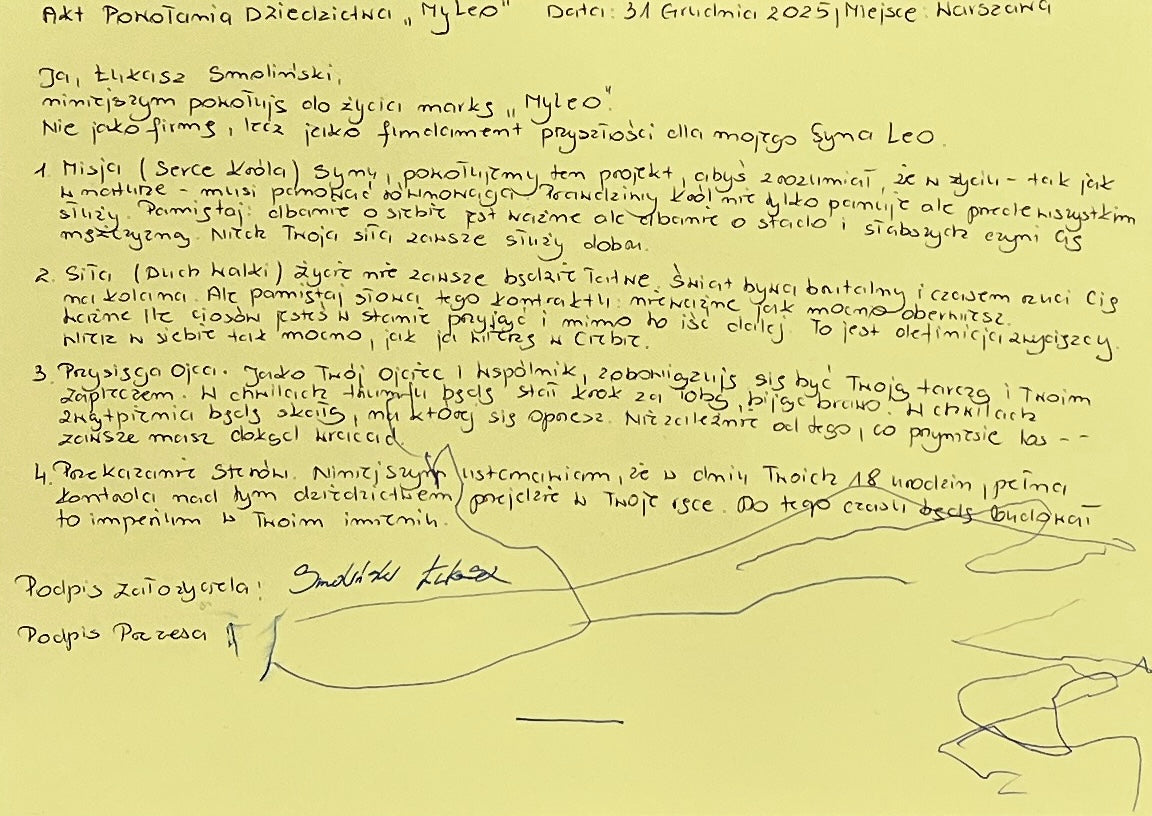 Akt Powołania Dziedzictwa „MyLeo" Data: 31 Grudnia 2025, Miejsce: Warszawa
Ja, Łukasz Smoliński,
niniejszym powołuję do życia markę „MyLeo".
Nie jako firmę, lecz jako fundament przyszłości dla mojego Syna Leo.
1. Misja (Serce Króla) Synu, powołujemy ten projekt, abyś zrozumiał, że w życiu - tak jak
w naturze - musi panować równowaga. Prawdziwy Król nie tylko panuje ale przede wszystkim
służy. Pamiętaj: dbanie o siebie jest ważne ale dbanie o stado i słabszych czyni Cię
mężczyzną. Niech Twoja siła zawsze służy dobru.
2. Siła (Duch Walki) Życie nie zawsze będzie łatwe. Świat bywa brutalny i czasem rzuci Cię
na kolana. Ale pamiętaj słowa tego kontraktu: nieważne jak mocno oberwiesz.
Ważne ile ciosów jesteś w stanie przyjąć i mimo to iść dalej. To jest definicja zwycięzcy.
Wierz w siebie tak mocno, jak ja wierzę w Ciebie.
3. Przysięga Ojca. Jako Twój Ojciec i Wspólnik, zobowiązuję się być Twoją tarczą i Twoim
zapleczem. W chwilach triumfu będę stał krok za Tobą, bijąc brawo. W chwilach
zwątpienia będę skałą, na której się oprzesz. Niezależnie od tego, co przyniesie los --
zawsze masz dokąd wracać.
4. Przekazanie Sterów. Niniejszym ustanawiam, że w dniu Twoich 18 urodzin, pełna
kontrola nad tym dziedzictwem przejdzie w Twoje ręce. Do tego czasu będę budował
to imperium w Twoim imieniu.
Podpis założyciela: Smoliński Łukasz
Podpis Prezesa